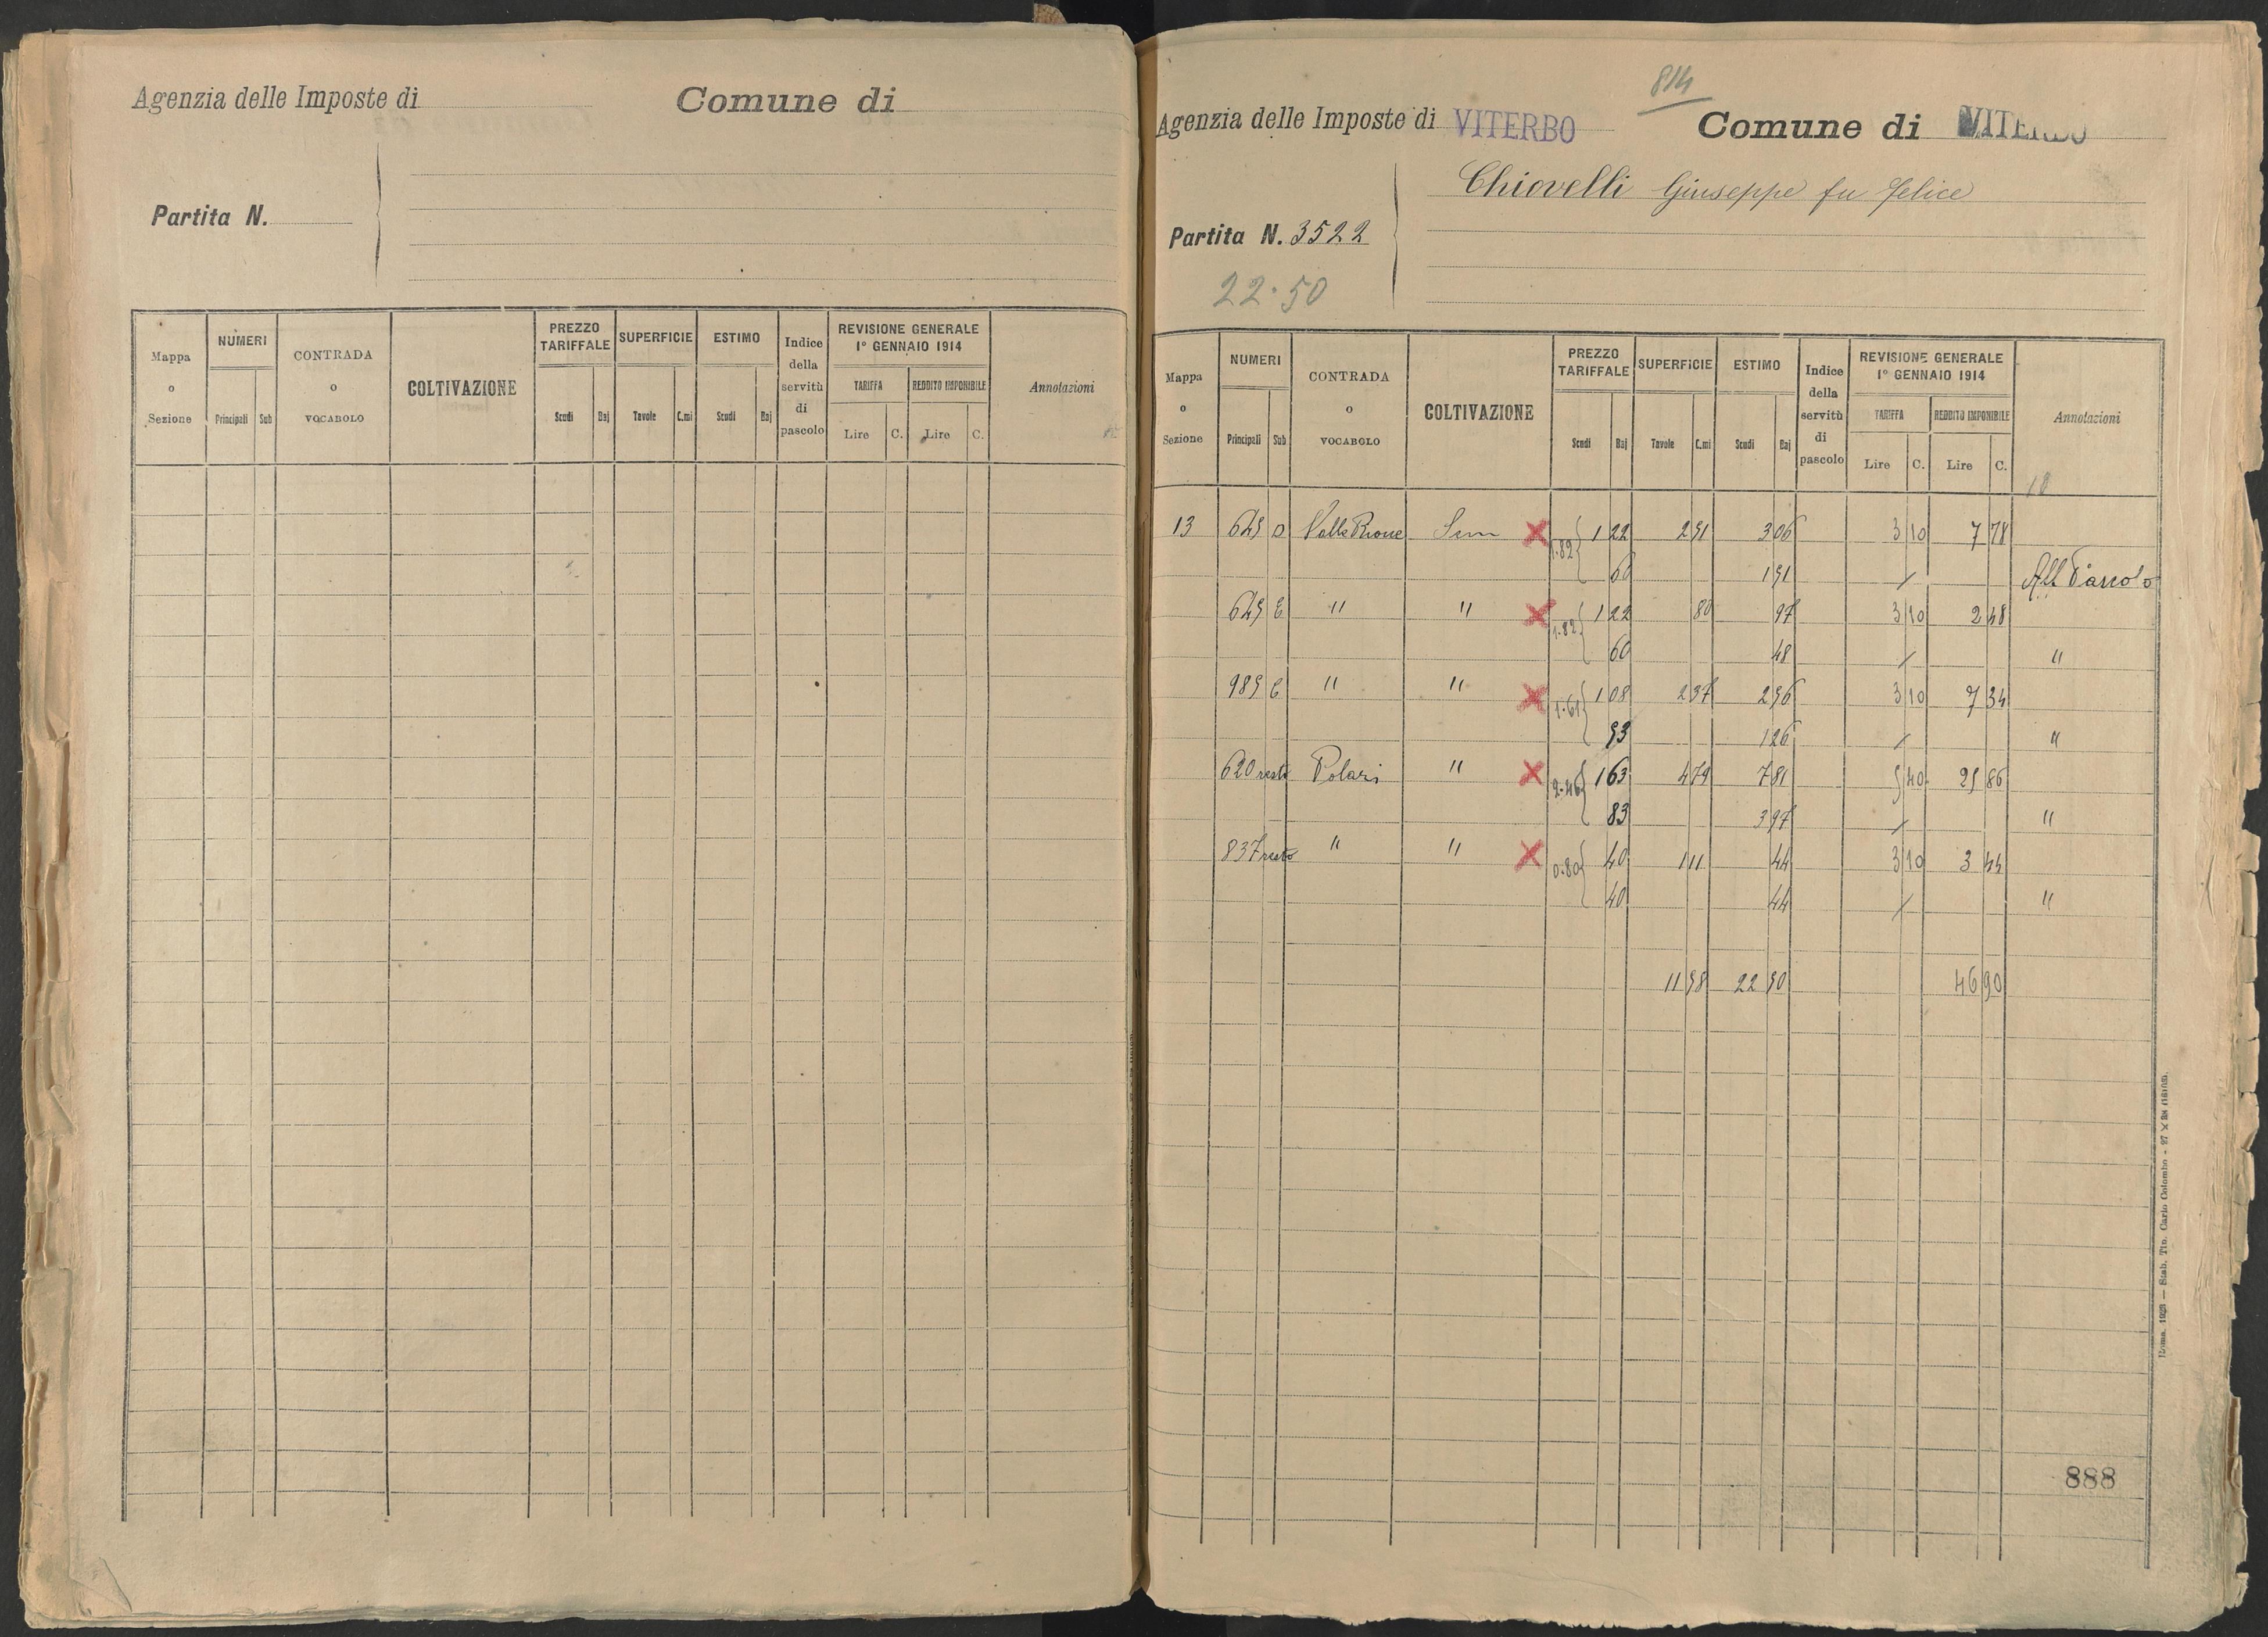 Agenzia delle Imposte di
Comune di
Partita N.
Mappa o Sezione
NUMERI
Principali Sub
CONTRADA o VOCABOLO
COLTIVAZIONE
PREZZO TARIFFALE
Scudi Baj
SUPERFICIE
Tavole C.mi
ESTIMO
Scudi Baj
Indice della servitù di pascolo
REVISIONE GENERALE 1° GENNAIO 1914
TARIFFA
Lire C.
REDDITO IMPONIBILE
Lire C.
Annotazioni
814
Agenzia delle Imposte di VITERBO
Comune di VITERBO
Chiovelli Giuseppe fu Felice
Partita N. 3522
22.50
Mappa o Sezione
NUMERI
Principali Sub
CONTRADA o VOCABOLO
COLTIVAZIONE
PREZZO TARIFFALE
Scudi Baj
SUPERFICIE
Tavole C.mi
ESTIMO
Scudi Baj
Indice della servitù di pascolo
REVISIONE GENERALE 1° GENNAIO 1914
TARIFFA
Lire C.
REDDITO IMPONIBILE
Lire C.
Annotazioni
18
13 645 D Sem 1.82 1 22 2 51 3 06 3 10 7 78
60 1 51 /
645 E " " 1.82 1 22 80 97 3 10 2 48
60 48 / "
985 C " " 1.61 1 08 2 37 2 56 3 10 7 34
53 1 26 / "
620 resto Polari " 2.46 1 63 4 79 7 81 5 40 25 86
83 3 97 / "
837 resto " " 0.80 40 1 11 44 3 10 3 44
40 44 / "
11 58 22 50 46 90
888
Roma, 1923 — Stab. Tip. Carlo Colombo - 27 X